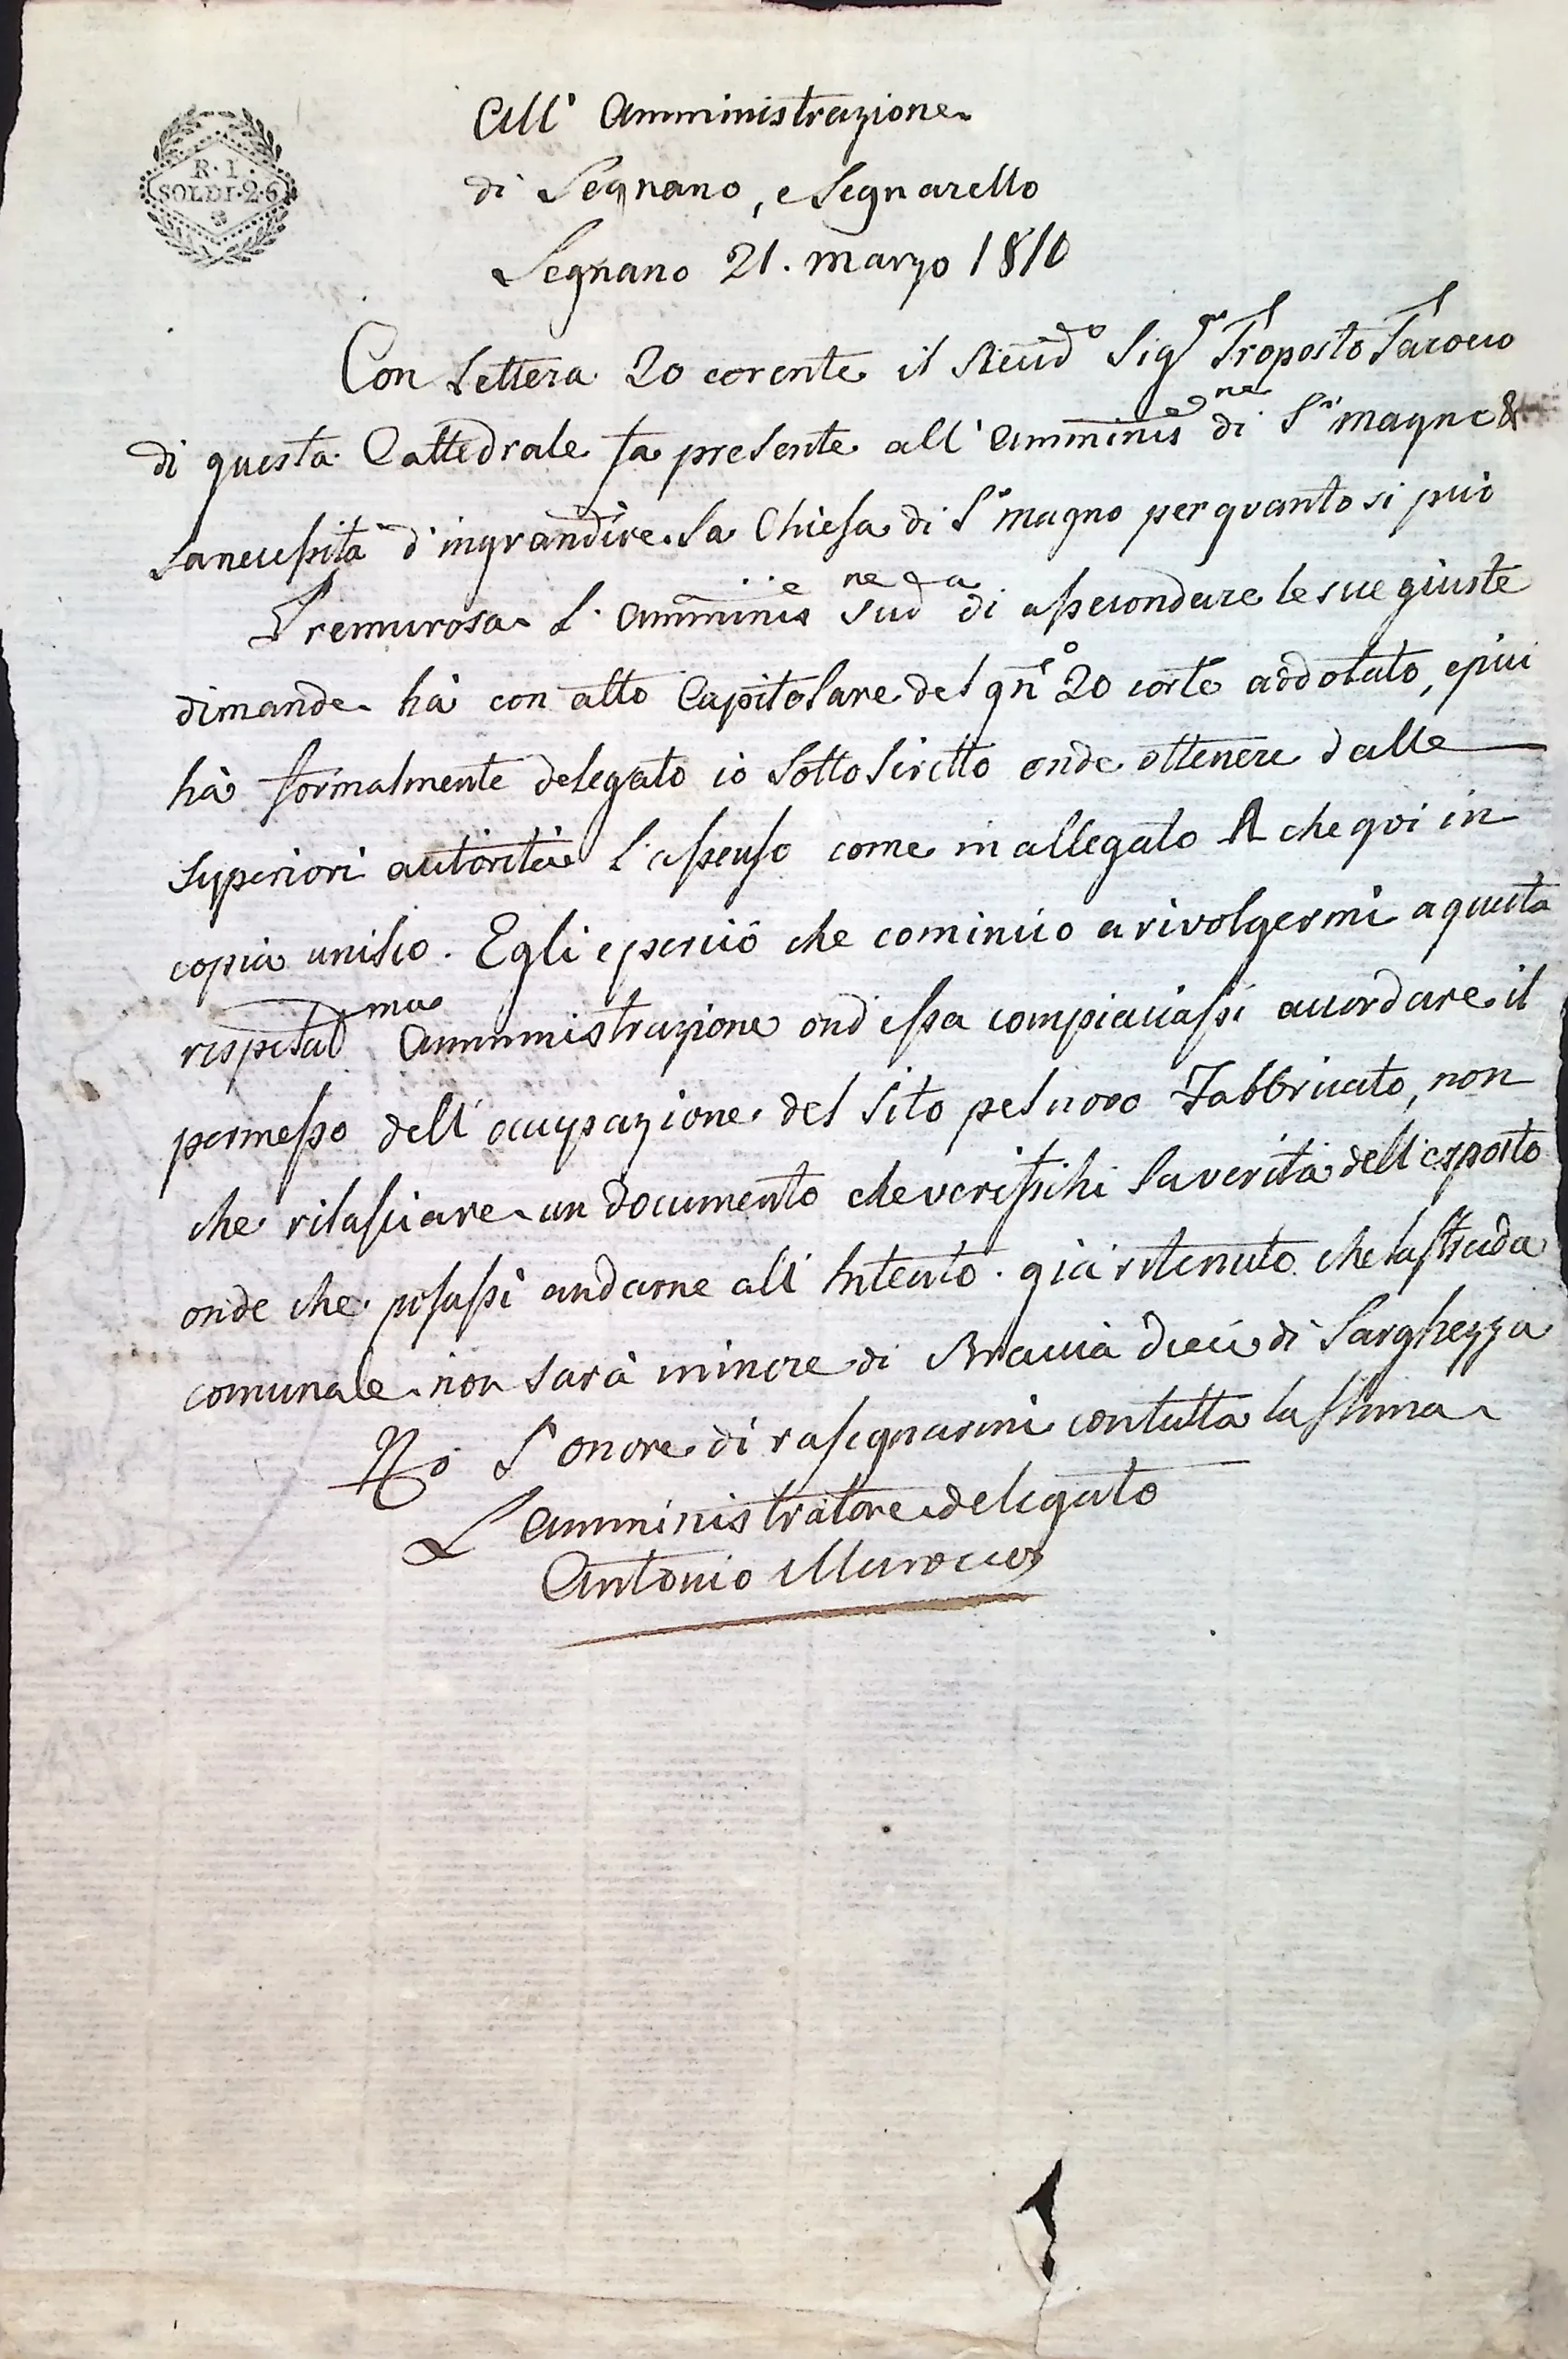 R. I.
SOLDI. 2. 6
All' Amministrazione
di Legnano, e Legnarello
Legnano 21. marzo 1810
Con Lettera 20 corente il Reud.º Sig.r Proposto Paroco
di questa Cattedrale fa presente all' Amminis.ne di S.n magno &
la necessità d'ingrandire la Chiesa di S.n magno per quanto si può
Premurosa L' Amminis.ne sud.a di assecondare le sue giuste
dimande hà con atto Capitolare del gn.º 20 corte addotato, e più
hà formalmente delegato io Sottoscritto onde ottenere dalle
superiori autorità l'assenso come in allegato A che qui in
copia unisco. Egli e perciò che comincio a rivolgermi a questa
rispetab.ma Amministrazione ond essa compiaciassi accordare il
permesso dell' ocupazione del Sito pel novo Fabbricato, non
che rilasciare un documento che verifichi la verità dell' esposto
onde che possassi andarne all' Intento. già ritenuto che la strada
comunale non sarà minore di Braccia dieci di Larghezza
Hò l'onore di rasegnarmi con tutta la stima
L'Amministratore delegato
Antonio Marocco